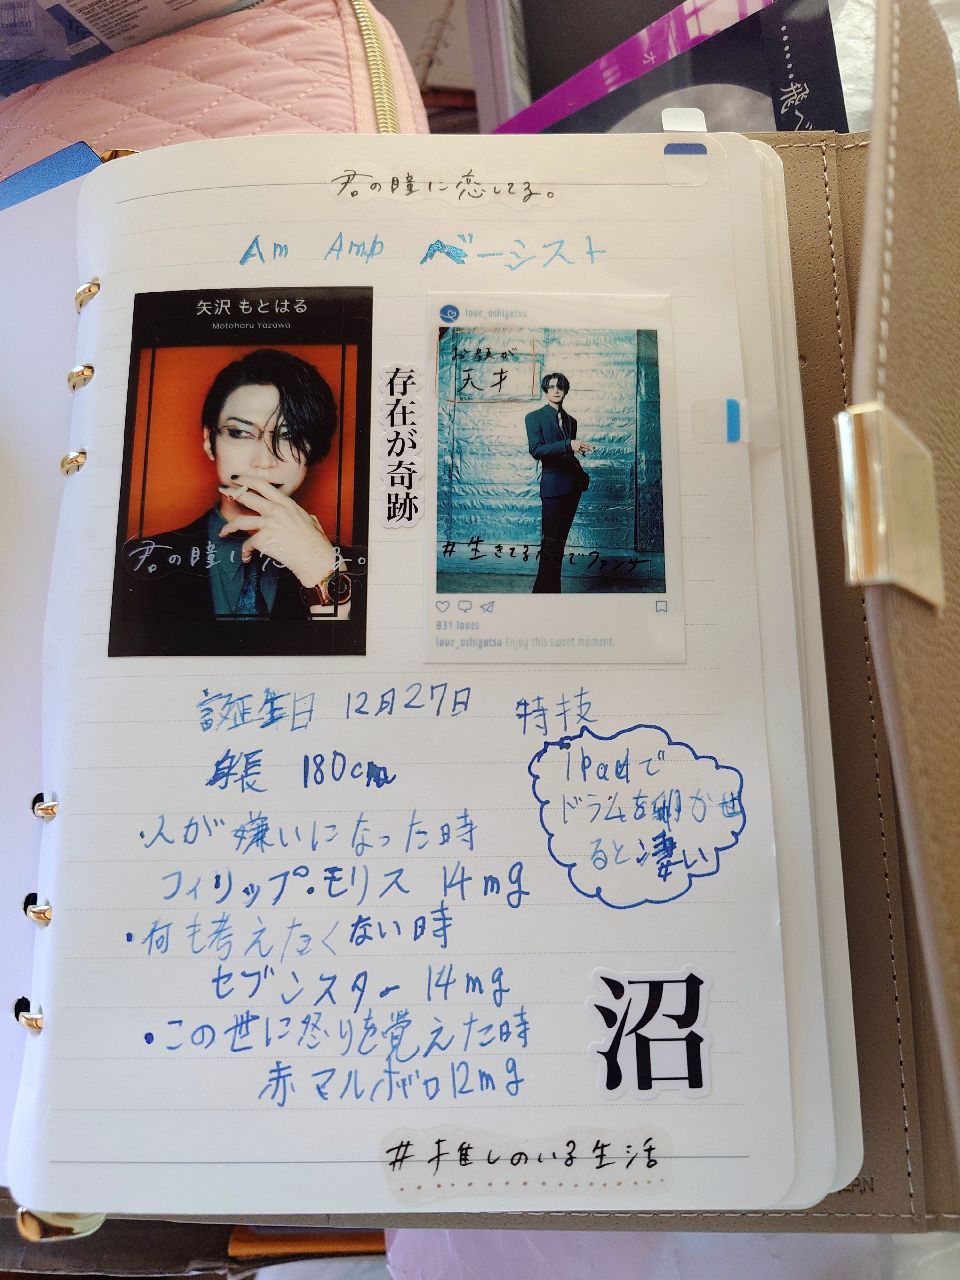 ……飛べ
オ
君の瞳に恋してる。
Am Amp ベーシスト
矢沢 もとはる
Motoharu Yazawa
君の瞳に恋してる。
存在が奇跡
love_oshigatsu
お顔が
天才
#生きてるだけでファンサ
831 loves
love_oshigatsu Enjoy this sweet moment.
誕生日 12月27日
身長 180cm
特技
iPadで
ドラムを叩かせ
ると凄い
・人が嫌いになった時
フィリップ・モリス 14mg
・何も考えたくない時
セブンスター 14mg
・この世に怒りを覚えた時
赤マルボロ12mg
沼
#推しのいる生活